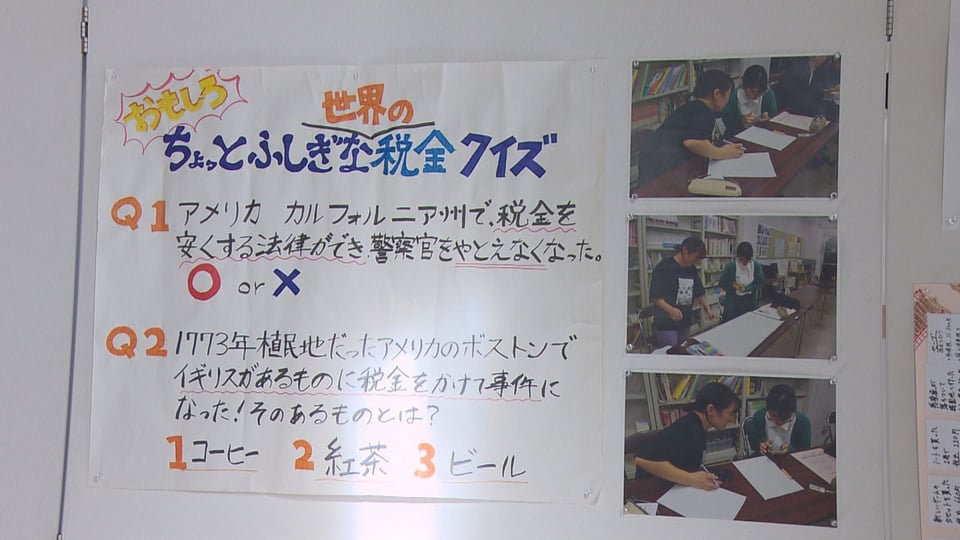 おもしろ
世界の
ちょっとふしぎな税金クイズ
Q1 アメリカ カルフォルニア州で、税金を
安くする法律ができ警察官をやとえなくなった。
○ or ×
Q2 1773年植民地だったアメリカのボストンで
イギリスがあるものに税金をかけて事件に
なった!そのあるものとは?
1 コーヒー 2 紅茶 3 ビール